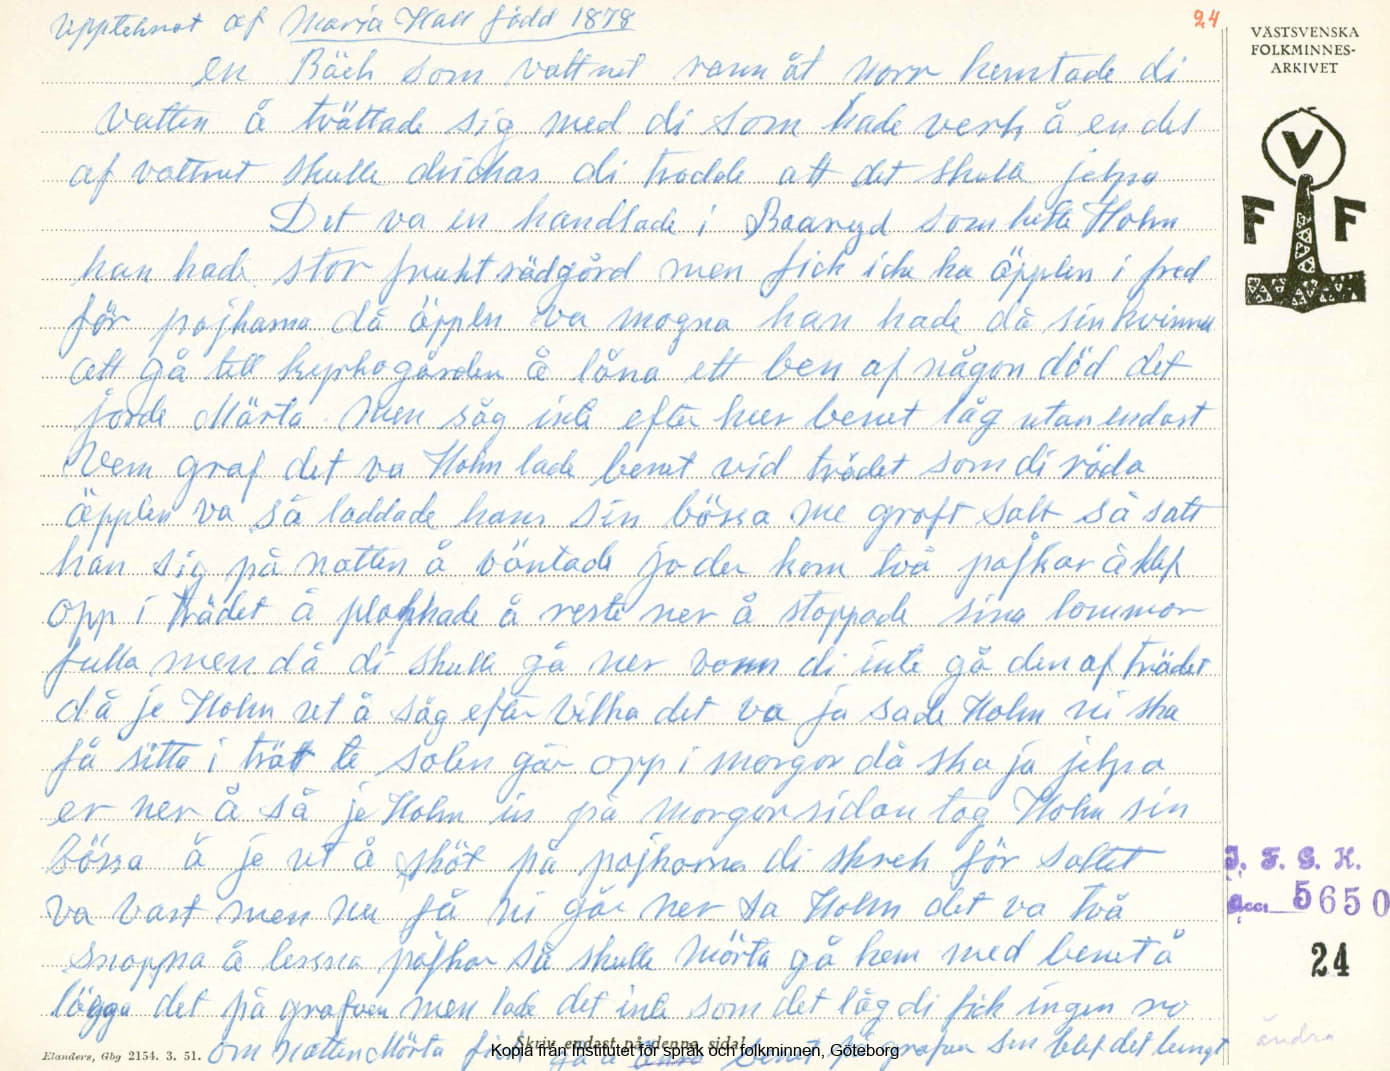 Upptecknat af Maria Hall född 1878
24
VÄSTSVENSKA
FOLKMINNES-
ARKIVET
V
F F
en Bäck som vattnet rann åt norr hemtade di
vatten å tvättade sig med di som hade verk å en del
af vattnet skulle drickas di trodde att det skulle jelpa
Det va en handlade i Boaryd som hette Holm
han hade stor frukt rädgård men fick icke ha äpplen i fred
för pojkarna då äpplen va mogna han hade då sin kvinna
att gå till kyrkogården å låna ett ben af någon död det
jorde Märta men såg inte efter hur benet låg utan endast
vem graf det va Holm lade benet vid trädet som di röda
äpplen va så laddade hans sin bössa me groft salt så satt
han sig på natten å väntade jo der kom två pojkar å klef
opp i trädet å plockade å reste ner å stoppade sina lommor
fulla men då di skulle gå ner vann di inte gå den af trädet
då je Holm ut å såg efter vilka det va ja sade Holm ni ska
få sitta i trätt te solen går opp i morgon då ska ja jelpa
er ner å så je Holm in på morgonsidan tog Holm sin
bössa å je ut å sköt på pojkarna di skrek för saltet
va vast men nu få ni går ner sa Holm det va två
snoppna å lessna pojkar så skulle Märta gå hem med benet å
lägga det på grafven men lade det inte som det låg di fick ingen ro
om natten Märta gå å benet på grafven sen blef det lungt
Skriv endast på denna sida!
Elanders, Gbg 2154. 3. 51.
Kopia från Institutet för språk och folkminnen, Göteborg
I. F. G. H.
Acc. 5650
24
ändra